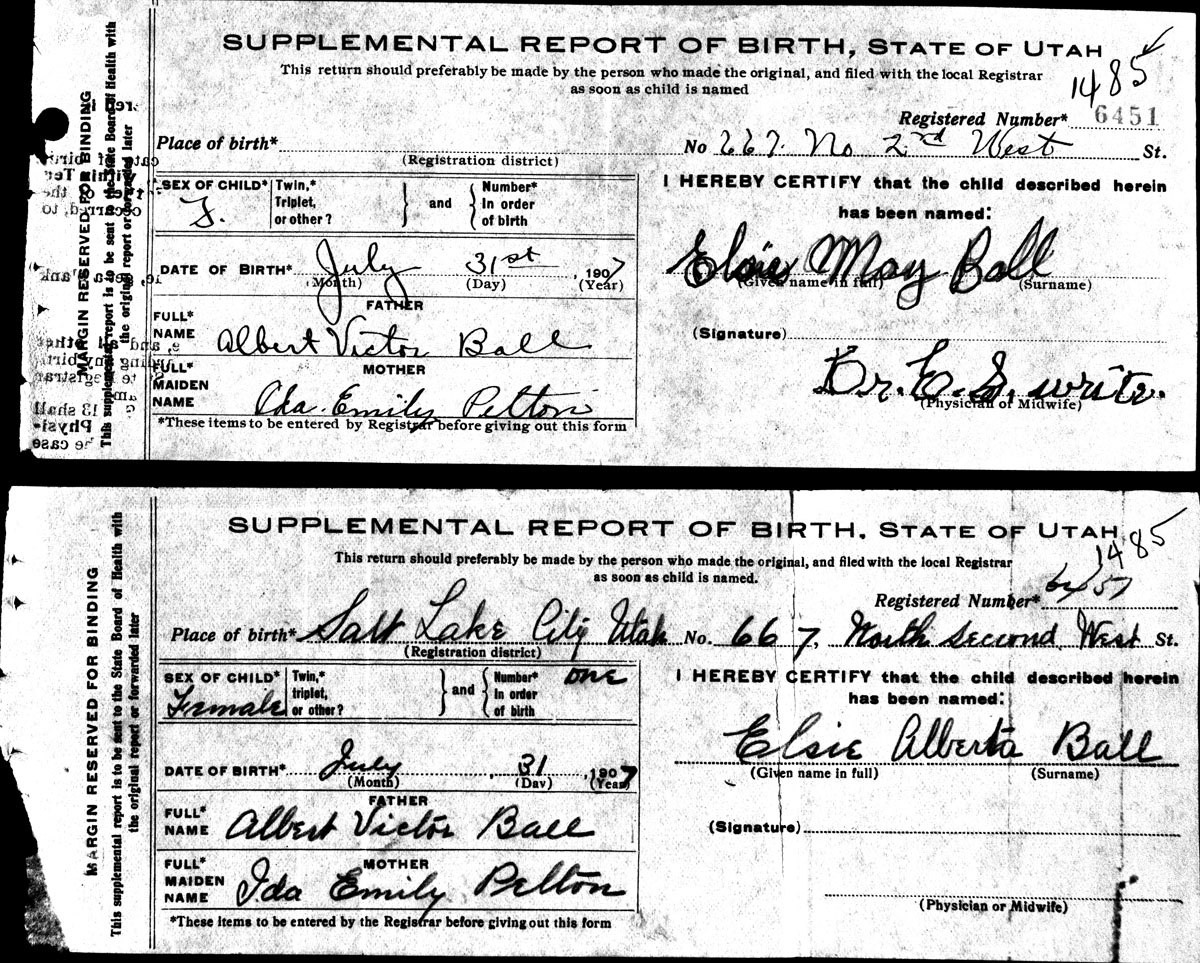 SUPPLEMENTAL REPORT OF BIRTH, STATE OF UTAH
This return should preferably be made by the person who made the original, and filed with the local Registrar
as soon as child is named
1485
Registered Number* 6451
Place of birth* No 667. No 2nd West St.
(Registration district)
SEX OF CHILD* F.
Twin,* Triplet, or other? } and { Number* In order of birth
I HEREBY CERTIFY that the child described herein
has been named:
DATE OF BIRTH* July 31st, 1907
(Month) (Day) (Year)
Elsie May Ball
(Given name in full) (Surname)
FATHER
FULL* NAME Albert Victor Ball
(Signature)
MOTHER
FULL* MAIDEN NAME Ida Emily Pelton
Dr. E. S. write.
(Physician or Midwife)
*These items to be entered by Registrar before giving out this form
MARGIN RESERVED FOR BINDING
This supplemental report is to be sent to the State Board of Health with
the original report or forwarded later
SUPPLEMENTAL REPORT OF BIRTH, STATE OF UTAH
This return should preferably be made by the person who made the original, and filed with the local Registrar
as soon as child is named.
1485
Registered Number* 6451
Place of birth* Salt Lake City Utah No. 667, North Second West St.
(Registration district)
SEX OF CHILD* Female
Twin,* triplet, or other? } and { Number* In order of birth one
I HEREBY CERTIFY that the child described herein
has been named:
Elsie Alberta Ball
(Given name in full) (Surname)
DATE OF BIRTH* July, 31, 1907
(Month) (Day) (Year)
FATHER
FULL* NAME Albert Victor Ball
(Signature)
MOTHER
FULL* MAIDEN NAME Ida Emily Pelton
(Physician or Midwife)
*These items to be entered by the Registrar before giving out this form
MARGIN RESERVED FOR BINDING
This supplemental report is to be sent to the State Board of Health with
the original report or forwarded later